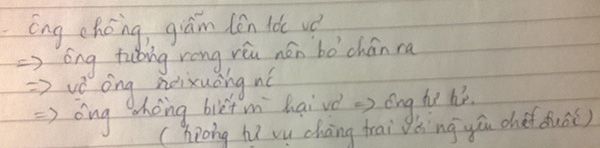 - ông chồng giẫm lên tóc vợ
=> ông tưởng rong rêu nên bỏ chân ra
=> vợ ông rơi xuống
=> ông chồng biết m hại vợ => ông tự tử.
(tương tự vụ chàng trai với ng yêu chết đuối)